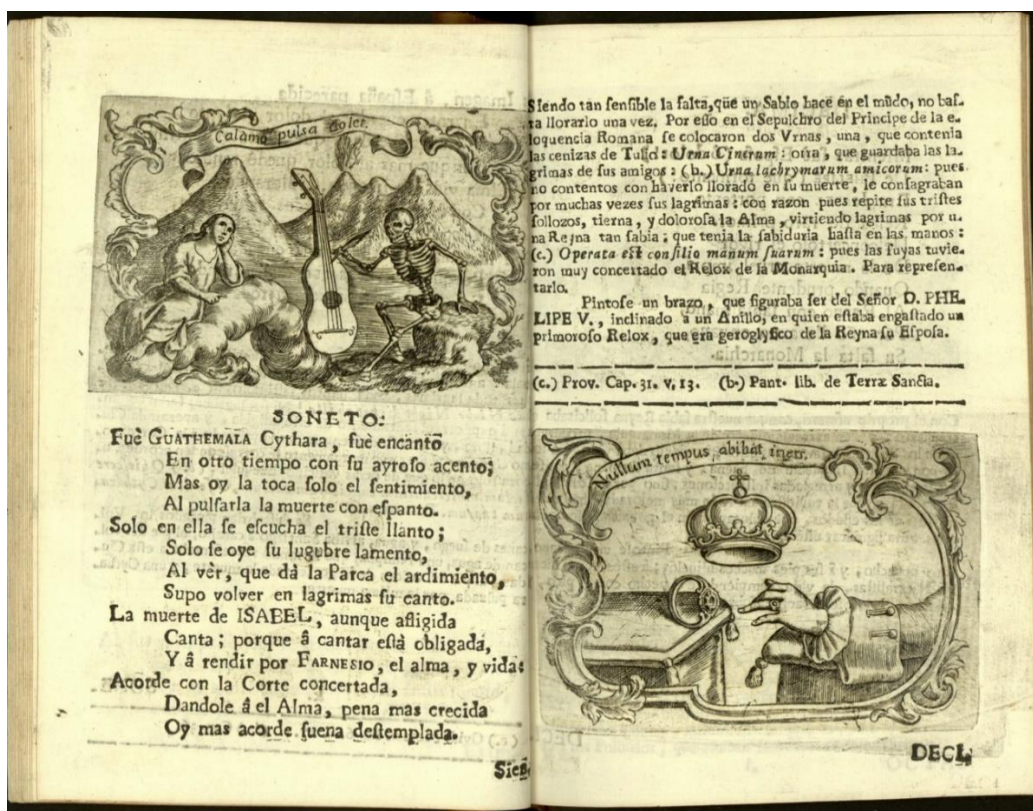 Calamo pulsa dolet.
SONETO:
Fuè GUATHEMALA Cythara, fuè encantō
En otro tiempo con ſu ayroſo acento;
Mas oy la toca ſolo el ſentimiento,
Al pulſarla la muerte con eſpanto.
Solo en ella ſe eſcucha el triſte llanto;
Solo ſe oye ſu lugubre lamento,
Al vèr, que dà la Parca el ardimiento,
Supo volver en lagrimas ſu canto.
La muerte de ISABEL, aunque afligida
Canta; porque â cantar eſtà obligada,
Y â rendir por FARNESIO, el alma, y vida:
Acorde con la Corte concertada,
Dandole â el Alma, pena mas crecida
Oy mas acorde ſuena deſtemplada.
Sien-
Siendo tan ſenſible la falta, que un Sabio hace en el mūdo, no baſ-
ta llorarlo una vez. Por eſſo en el Sepulchro del Principe de la e-
loquencia Romana ſe colocaron dos Vrnas, una, que contenia
las cenizas de Tulio: Urna Cinerum: otra, que guardaba las la-
grimas de ſus amigos: (b.) Urna lachrymarum amicorum: pues
no contentos con haverlo llorado en ſu muerte, le conſagraban
por muchas vezes ſus lagrimas: con razon pues repite ſus triſtes
ſollozos, tierna, y doloroſa la Alma, virtiendo lagrimas por u-
na Reyna tan ſabia; que tenia la ſabiduria haſta en las manos:
(c.) Operata eſt conſilio manum ſuarum: pues las ſuyas tuvie-
ron muy concertado el Relox de la Monarquia. Para repreſen-
tarlo.
Pintoſe un brazo, que figuraba ſer del Señor D. PHE-
LIPE V., inclinado à un Anillo, en quien eſtaba engaſtado un
primoroſo Relox, que era geroglyfico de la Reyna ſu Eſpoſa.
(c.) Prov. Cap. 31. v. 13. (b.) Pant. lib. de Terræ Sancta.
Nullum tempus abibat iners.
DECI-